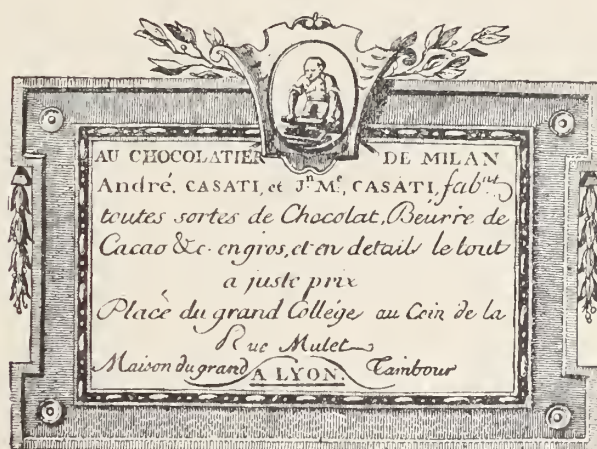 AU CHOCOLATIER DE MILAN
André, CASATI, et Jn. Me. CASATI, fabnt
toutes sortes de Chocolat, Beurre de
Cacao &c. en gros, et en détails le tout
a juste prix
Place du grand Collége au Coin de la
Rue Mulet
Maison du grand Tambour
A LYON.